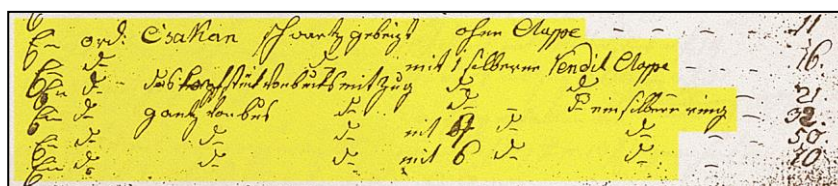 Ein ord: Csakan schwartz gebeizt ohne Clappe – – – 11
Ein do do mit 1 silberne Ventil Clappe – – 16.
Ein do das kopfstük von bux mit zug do do – – 21
Ein do gantz von bux do do – do ein silberne ring – 32.
Ein do do do mit 4 do do – – – 50.
Ein do do do mit 6 do do – – – 70.